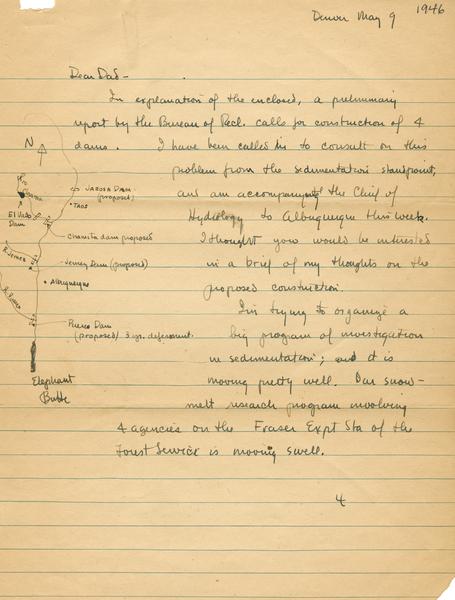 1946
Denver May 9
Dear Dad -
In explanation of the enclosed, a preliminary
report by the Bureau of Recl. calls for construction of 4
dams. I have been called in to consult on this
problem from the sedimentation standpoint,
and am accompanying the Chief of
Hydrology to Albuquerque this week.
I thought you would be interested
in a brief of my thoughts on the
proposed construction.
I'm trying to organize a
big program of investigation
in sedimentation; and it is
moving pretty well. Our snow-
melt research program involving
4 agencies on the Fraser Expt Sta of the
Forest Service is moving swell.
4
N
Rio
Chama
El Vado
Dam
JAROSA DAM
(proposed)
TAOS
Chamita dam proposed
R. Jemez
Jemez Dam (proposed)
Albuquerque
R. Puerco
Puerco Dam
(proposed) 3 yr. deferment
Elephant
Butte